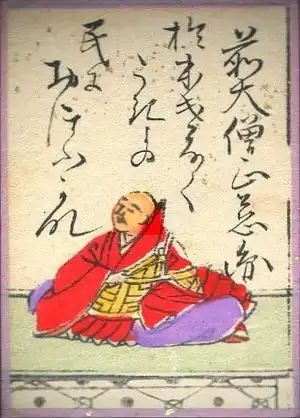 前大僧正慈圓
於本けなく
うき世の
民に
おほふかな